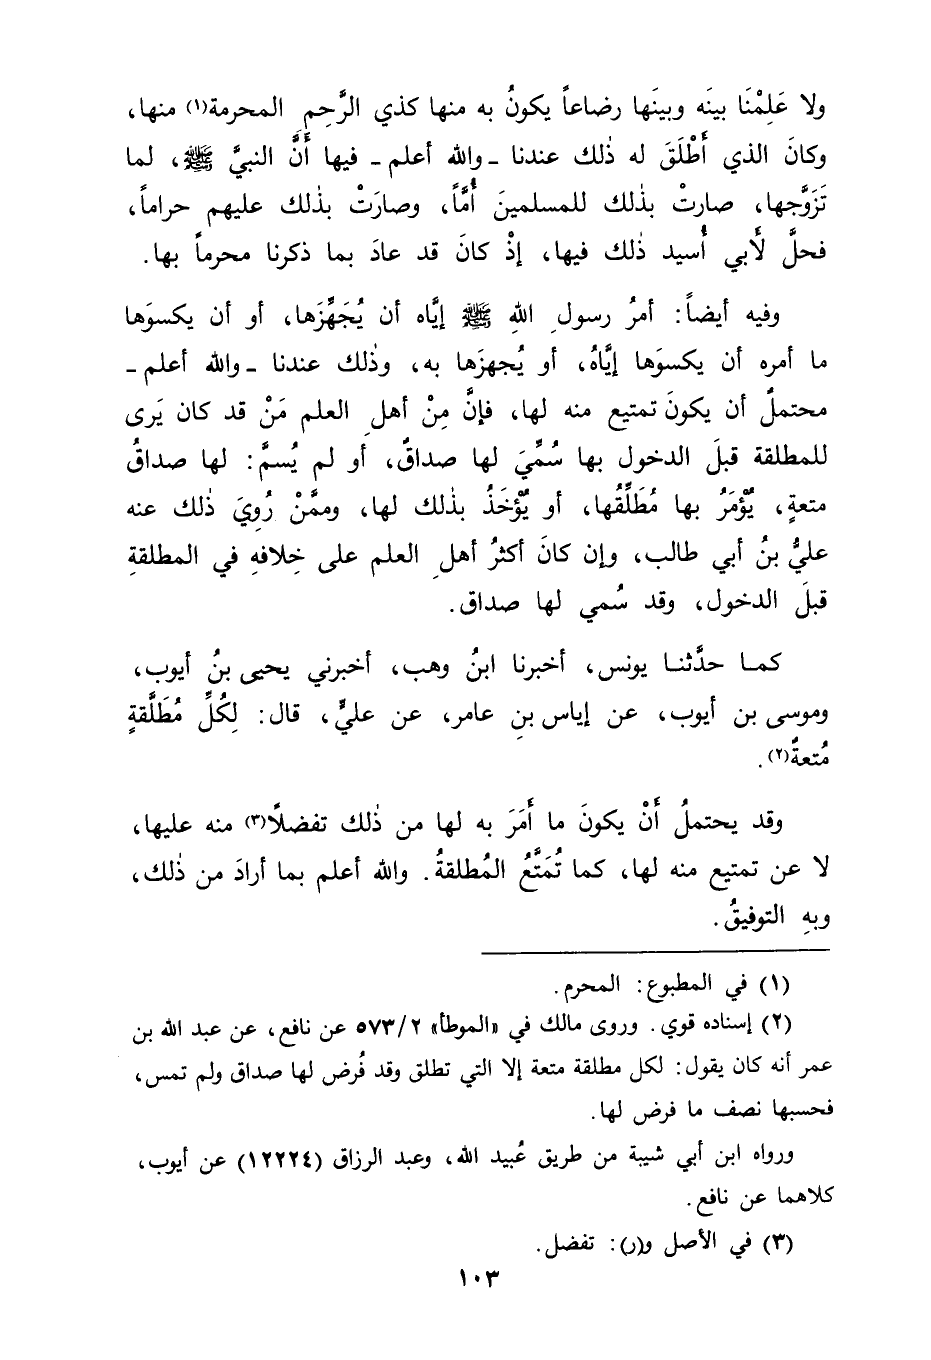 ولا عَلِمْنَا بينَه وبينَها رضاعاً يكونُ به منها كذي الرَّحِمِ المحرمة(١) منها،
وكانَ الذي أَطْلَقَ له ذٰلك عندنا ـ والله أعلم ـ فيها أَنَّ النبيَّ ﷺ، لما
تَزَوَّجها، صارتْ بذٰلك للمسلمينَ أُمّاً، وصارَتْ بذٰلك عليهم حراماً،
فحلَّ لأبي أُسيد ذٰلك فيها، إذْ كانَ قد عادَ بما ذكرنا محرماً بها.
وفيه أيضاً: أمرُ رسولِ اللهِ ﷺ إيَّاه أن يُجَهِّزَها، أو أن يكسوَها
ما أمره أن يكسوَها إيَّاهُ، أو يُجهزَها به، وذٰلك عندنا ـ والله أعلم ـ
محتملٌ أن يكونَ تمتيع منه لها، فإنَّ مِنْ أهلِ العلم مَنْ قد كان يَرى
للمطلقة قبلَ الدخول بها سُمِّيَ لها صداقٌ، أو لم يُسمَّ: لها صداقُ
متعةٍ، يُؤمَرُ بها مُطَلِّقُها، أو يُؤخَذُ بذٰلك لها، وممَّنْ رُوِيَ ذٰلك عنه
عليُّ بنُ أبي طالب، وإن كانَ أكثرُ أهلِ العلم على خِلافهِ في المطلقةِ
قبلَ الدخول، وقد سُمي لها صداق.
كما حدَّثنا يونس، أخبرنا ابنُ وهب، أخبرني يحيى بنُ أيوب،
وموسى بن أيوب، عن إياس بنِ عامر، عن عليٍّ، قال: لِكُلِّ مُطَلَّقةٍ
مُتعةٌ(٢).
وقد يحتملُ أَنْ يكونَ ما أَمَرَ به لها من ذٰلك تفضلاً(٣) منه عليها،
لا عن تمتيع منه لها، كما تُمَتَّعُ المُطلقةُ. والله أعلم بما أرادَ من ذٰلك،
وبهِ التوفيقُ.
(١) في المطبوع: المحرم.
(٢) إسناده قوي. وروى مالك في «الموطأ» ٥٧٣/٢ عن نافع، عن عبد الله بن
عمر أنه كان يقول: لكل مطلقة متعة إلا التي تطلق وقد فُرض لها صداق ولم تمس،
فحسبها نصف ما فرض لها.
ورواه ابن أبي شيبة من طريق عُبيد الله، وعبد الرزاق (١٢٢٢٤) عن أيوب،
كلاهما عن نافع.
(٣) في الأصل و(ر): تفضل.
١٠٣